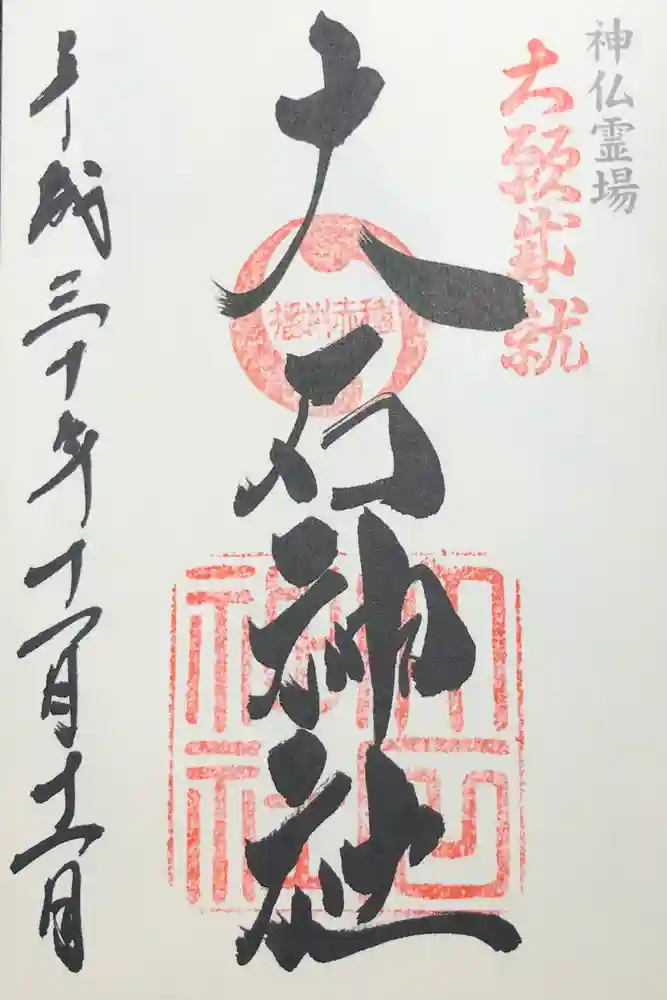 神仏霊場
大願成就
大石神社
播州赤穂
大石神社
平成三十年十一月十二日